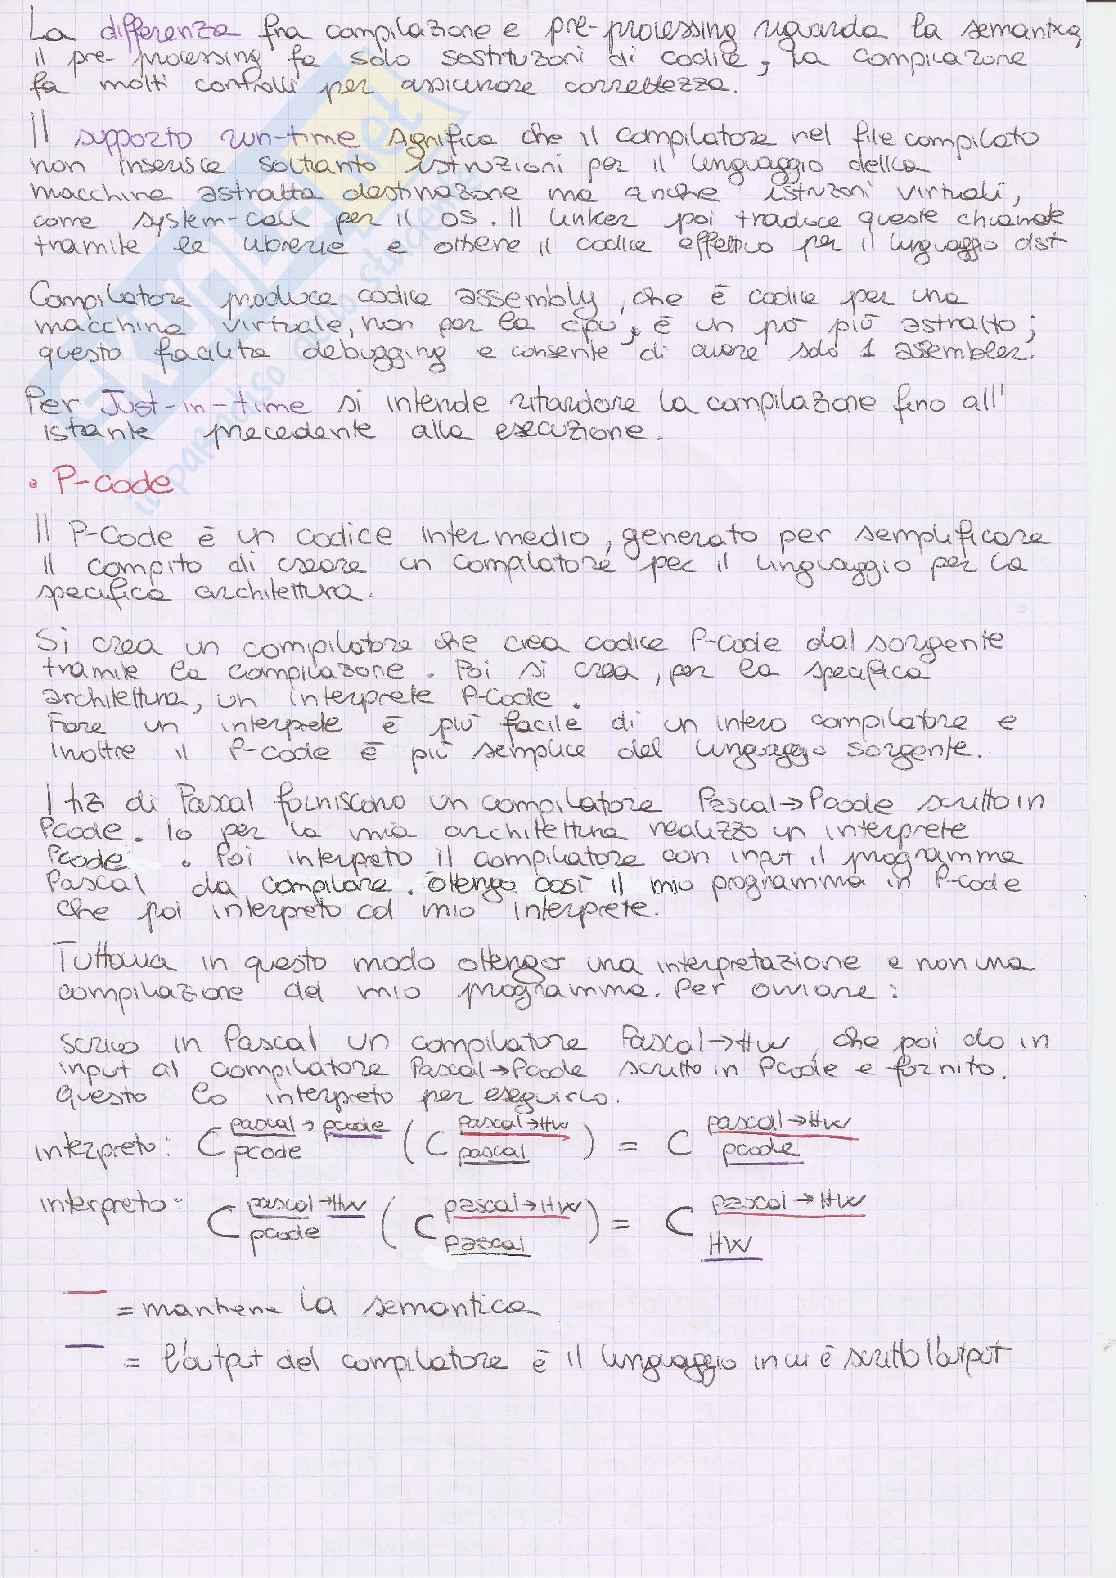 La differenza fra compilazione e pre-processing riguarda la semantica,
il pre-processing fa solo sostituzioni di codice, la compilazione
fa molti controlli per assicurare correttezza.
Il supporto run-time significa che il compilatore nel file compilato
non inserisce soltanto istruzioni per il linguaggio della
macchina astratta destinazione ma anche istruzioni virtuali,
come system-call per il OS. Il linker poi traduce queste chiamate
tramite le librerie e ottiene il codice effettivo per il linguaggio dist
Compilatore produce codice assembly, che è codice per una
macchina virtuale, non per la cpu, è un pò più astratto;
questo facilita debugging e consente di avere solo 1 assembler.
Per Just-in-time si intende ritardare la compilazione fino all'
istante precedente alla esecuzione.
• P-code
Il P-Code è un codice intermedio, generato per semplificare
il compito di creare un compilatore per il linguaggio per la
specifica architettura.
Si crea un compilatore che crea codice P-code dal sorgente
tramite la compilazione. Poi si crea, per la specifica
architettura, un interprete P-Code.
Fare un interprete è più facile di un intero compilatore e
inoltre il P-code è più semplice del linguaggio sorgente.
I tizi di Pascal forniscono un compilatore Pascal→Pcode scritto in
Pcode. Io per la mia architettura realizzo un interprete
Pcode. Poi interpreto il compilatore con input il programma
Pascal da compilare. Ottengo così il mio programma in P-code
che poi interpreto col mio interprete.
Tuttavia in questo modo ottengo una interpretazione e non una
compilazione del mio programma. Per ovviare:
scrivo in Pascal un compilatore Pascal→HW, che poi do in
input al compilatore Pascal→Pcode scritto in Pcode e fornito.
Questo lo interpreto per eseguirlo.
interpreto: C pascal→pcode pcode (C pascal→HW pascal) = C pascal→HW pcode
interpreto: C pascal→HW pcode (C pascal→HW pascal) = C pascal→HW HW
= mantiene la semantica
= l'output del compilatore è il linguaggio in cui è scritto l'output